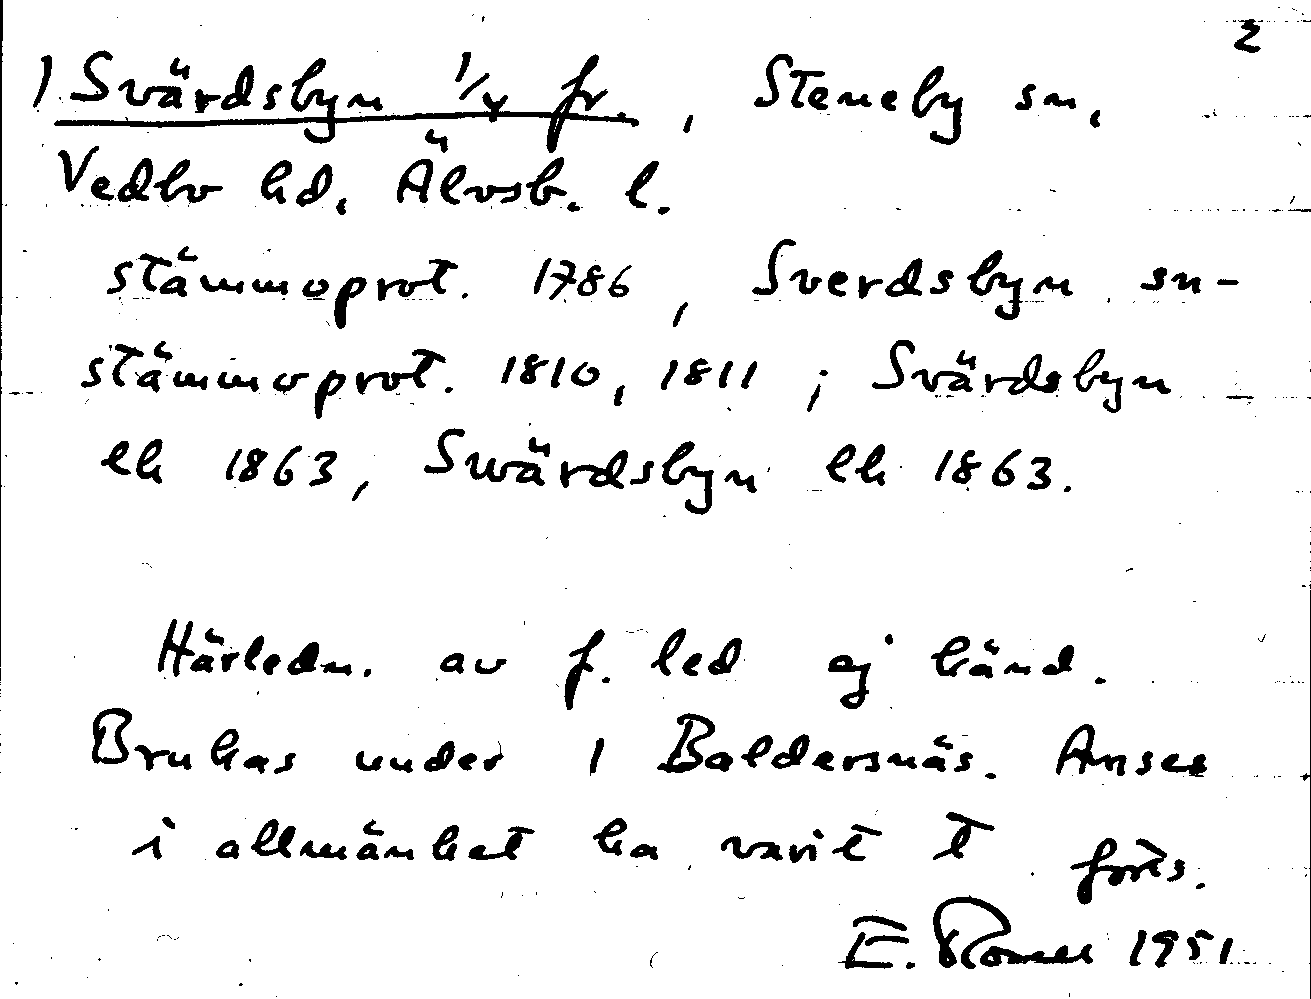 2
1 Svärdsbyn 1/4 fr., Steneby sn,
Vedbo hd, Älvsb. l.
stämmoprot. 1786, Sverdsbyn sn-
stämmoprot. 1810, 1811; Svärdsbyn
ek 1863, Swärdsbyn ek 1863.
Härledn. av f. led ej känd.
Brukas under 1 Baldersnäs. Anses
i allmänhet ha varit t forts.
E. 1951